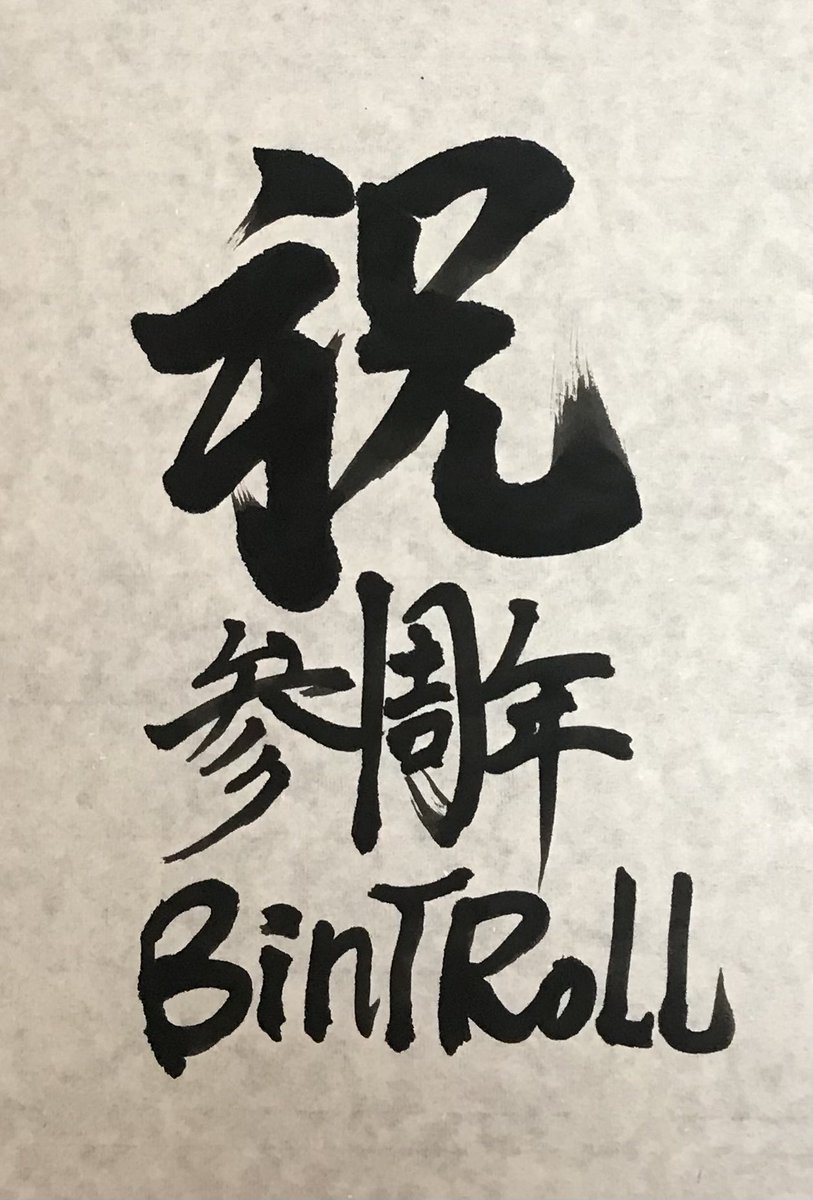 祝
参周年
BinTRoll